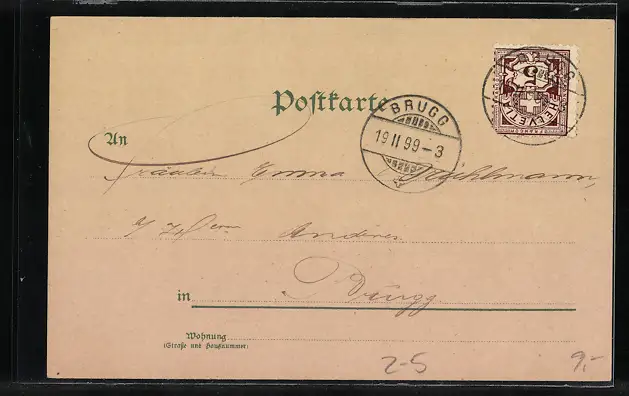 Postkarte
HELVETIA
5
BRUGG
19 II 99 – 3
An
Fräulein Emma Mühlmann,
Anderes
in Brugg
Wohnung
(Straße und Hausnummer)
2-5
9.-